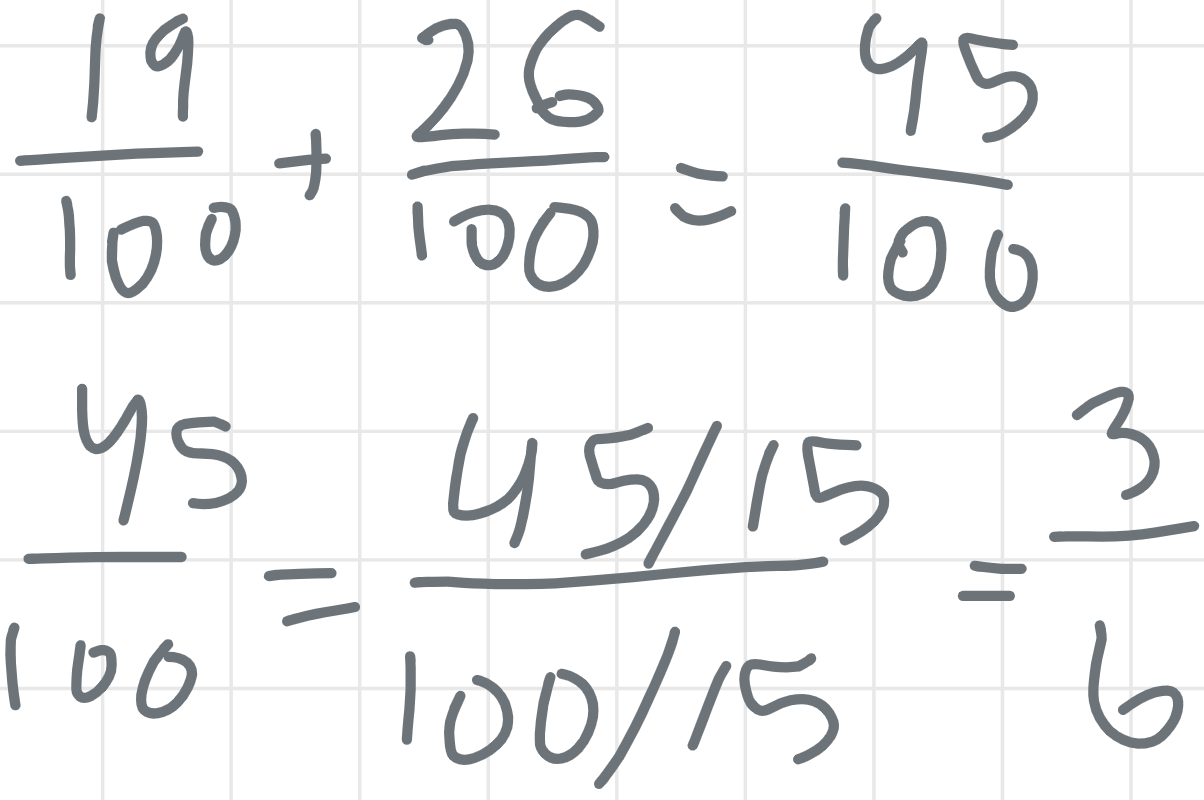 19/100 + 26/100 = 45/100
45/100 = (45/15)/(100/15) = 3/6